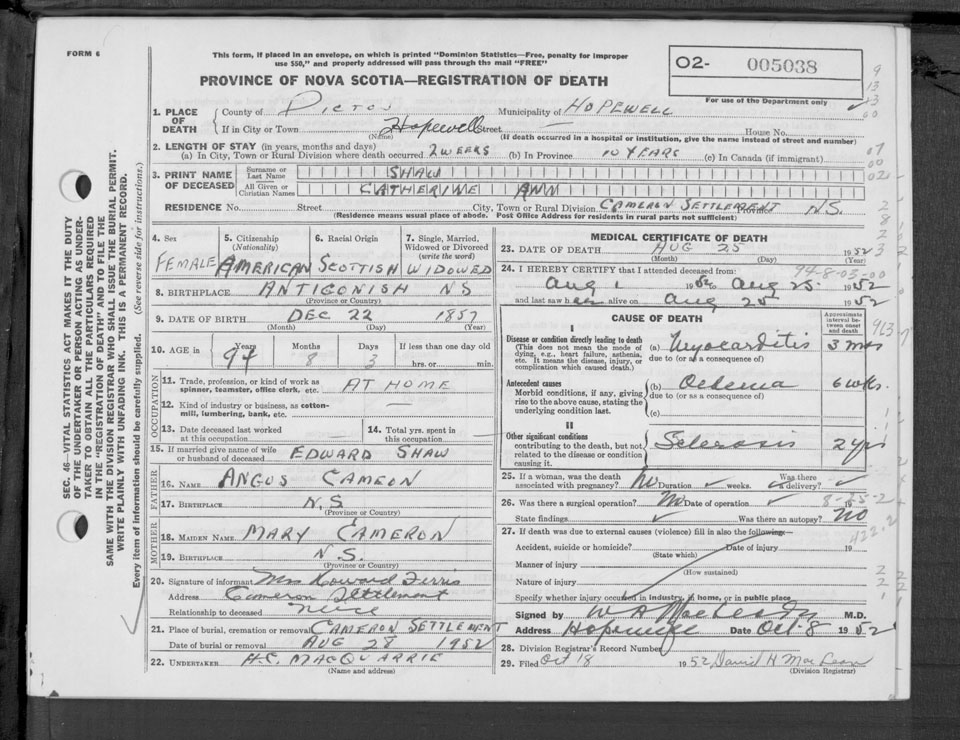 FORM 6
This form, if placed in an envelope, on which is printed "Dominion Statistics—Free, penalty for improper
use $50," and properly addressed will pass through the mail "FREE"
PROVINCE OF NOVA SCOTIA—REGISTRATION OF DEATH
O2- 005038
For use of the Department only
SEC. 46—VITAL STATISTICS ACT MAKES IT THE DUTY
OF THE UNDERTAKER OR PERSON ACTING AS UNDER-
TAKER TO OBTAIN ALL THE PARTICULARS REQUIRED
IN THE "REGISTRATION OF DEATH" AND TO FILE THE
SAME WITH THE DIVISION REGISTRAR WHO SHALL ISSUE THE BURIAL PERMIT.
WRITE PLAINLY WITH UNFADING INK. THIS IS A PERMANENT RECORD.
Every item of information should be carefully supplied. (See reverse side for instructions.)
1. PLACE OF DEATH County of Pictou Municipality of HOPEWELL
If in City or Town Hopewell Street — House No.
(Name) (If death occurred in a hospital or institution, give the name instead of street and number)
2. LENGTH OF STAY (in years, months and days)
(a) In City, Town or Rural Division where death occurred 2 WEEKS (b) In Province 10 YEARS (c) In Canada (if immigrant)
3. PRINT NAME OF DECEASED Surname or Last Name SHAW
All Given or Christian Names CATHERINE ANN
RESIDENCE No. Street City, Town or Rural Division CAMERON SETTLEMENT Province N.S.
(Residence means usual place of abode. Post Office Address for residents in rural parts not sufficient)
4. Sex FEMALE
5. Citizenship (Nationality) AMERICAN
6. Racial Origin SCOTTISH
7. Single, Married, Widowed or Divorced (write the word) WIDOWED
8. BIRTHPLACE ANTIGONISH NS
(Province or Country)
9. DATE OF BIRTH DEC 22 1857
(Month) (Day) (Year)
10. AGE in Years 94 Months 8 Days 3 If less than one day old
hrs. or min.
OCCUPATION
11. Trade, profession, or kind of work as spinner, teamster, office clerk, etc. AT HOME
12. Kind of industry or business, as cotton-mill, lumbering, bank, etc. —
13. Date deceased last worked at this occupation
14. Total yrs. spent in this occupation
15. If married give name of wife or husband of deceased EDWARD SHAW
FATHER
16. NAME ANGUS CAMEON
17. BIRTHPLACE N.S.
(Province or Country)
MOTHER
18. MAIDEN NAME MARY CAMERON
19. BIRTHPLACE N.S.
(Province or Country)
20. Signature of informant Mrs Howard Ferris
Address Cameron Settlement
Relationship to deceased Neice
21. Place of burial, cremation or removal CAMERON SETTLEMENT
Date of burial or removal AUG 28 1952
22. UNDERTAKER H.C. MACQUARRIE
(Name and address)
MEDICAL CERTIFICATE OF DEATH
23. DATE OF DEATH AUG 25 1952
(Month) (Day) (Year)
94-8-03-00
24. I HEREBY CERTIFY that I attended deceased from:
Aug 1 1952 to Aug 25 1952
and last saw her alive on Aug 25 1952
CAUSE OF DEATH
Approximate interval between onset and death
I
Disease or condition directly leading to death (a) Myocarditis 3 mos
(This does not mean the mode of dying, e.g., heart failure, asthenia, etc. It means the disease, injury, or complication which caused death.) due to (or as a consequence of)
Antecedent causes (b) Oedema 6 wks.
Morbid conditions, if any, giving rise to the above cause, stating the underlying condition last. due to (or as a consequence of)
(c)
II
Other significant conditions contributing to the death, but not related to the disease or condition causing it. Sclerosis 2 yrs
25. If a woman, was the death associated with pregnancy? No Duration weeks. Was there delivery?
8-25-2
26. Was there a surgical operation? No Date of operation 19
State findings Was there an autopsy? NO
422.2
27. If death was due to external causes (violence) fill in also the following—
Accident, suicide or homicide? Date of injury 19
(State which)
Manner of injury
(How sustained)
Nature of injury
Specify whether injury occurred in industry, in home, or in public place
Signed by W A MacLeod M.D.
Address Hopewell Date Oct-8 1952
28. Division Registrar's Record Number
29. Filed Oct 18 1952 David H MacLean
(Division Registrar)